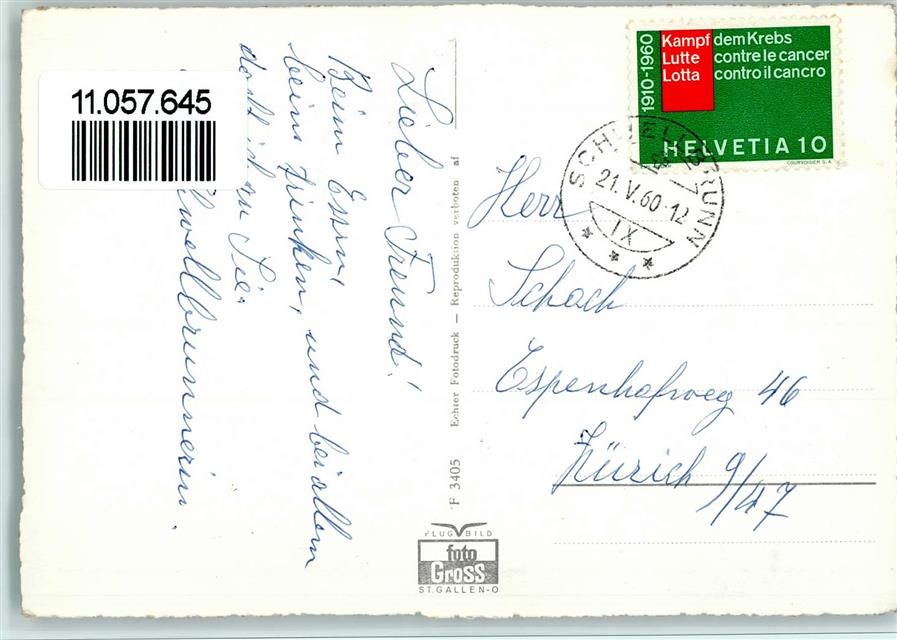 11.057.645
Lieber Freund!
Beim Essen,
beim Trinken, und bei allem
denkt
Sie.
wellbrunnerin.
Echter Fotodruck — Reproduktion verboten af
F 3405
FLUG BILD
foto
GROSS
ST. GALLEN-O
1910-1960
Kampf dem Krebs
Lutte contre le cancer
Lotta contro il cancro
HELVETIA 10
COURVOISIER S.A.
SCHWELLBRUNN
21.V.60-12
IX
Herr
Schoch
Espenhofweg 46
Zürich 9/47